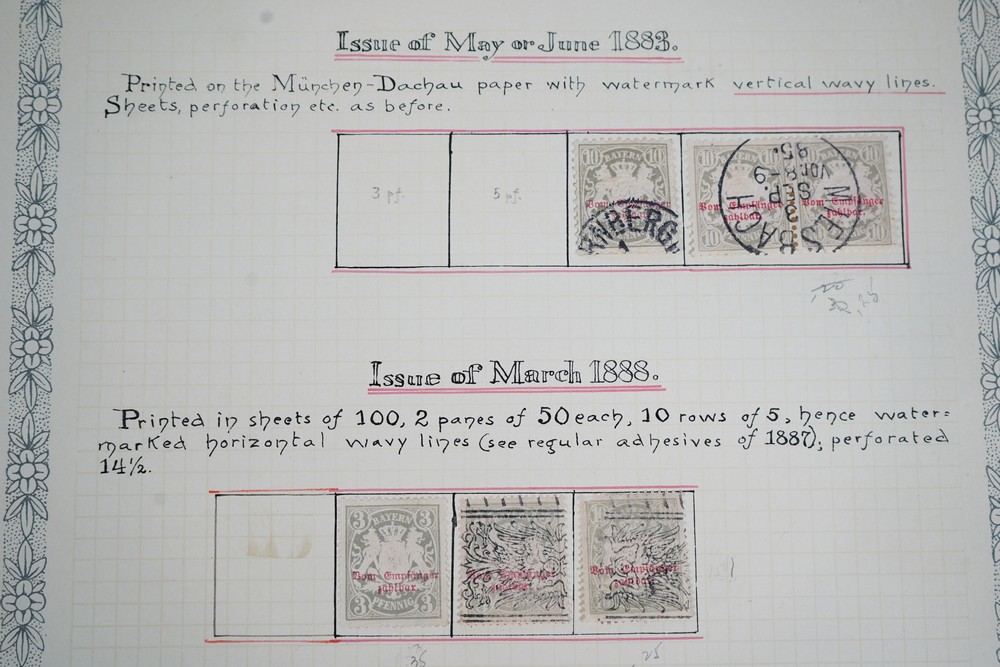 Issue of May or June 1883.
Printed on the München-Dachau paper with watermark vertical wavy lines.
Sheets, perforation etc. as before.
3 pf.
5 pf.
10 BAYERN 10
Vom Empfänger
NBERG
1
10 BAYERN 10
Vom Empfänger
zahlbar.
10 10
Vom Empfänger
zahlbar.
10 10
MIESBACH
3
SEP.
VOR. 8-9
85.
32
Issue of March 1888.
Printed in sheets of 100, 2 panes of 50 each, 10 rows of 5, hence water=
marked horizontal wavy lines (see regular adhesives of 1887); perforated
14½.
3 BAYERN 3
Vom Empfänger
zahlbar.
3 PFENNIG 3
Vom Empfänger
zahlbar.
36
25